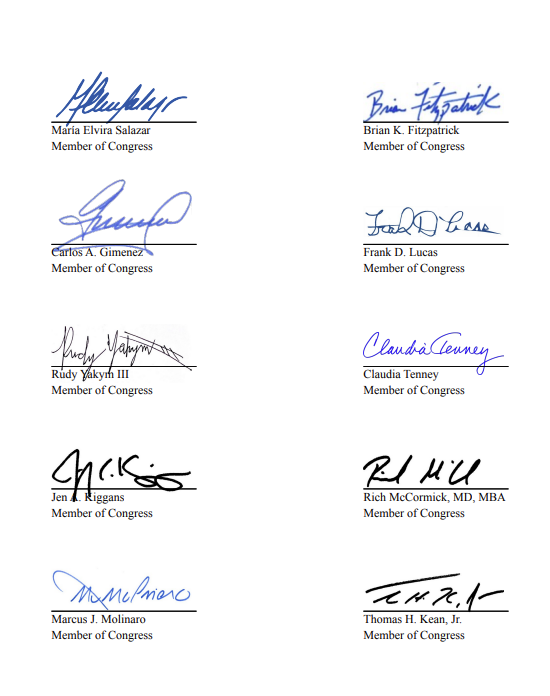 María Elvira Salazar
Member of Congress
Brian Fitzpatrick
Brian K. Fitzpatrick
Member of Congress
Carlos A. Gimenez
Member of Congress
Frank D. Lucas
Member of Congress
Rudy Yakym III
Rudy Yakym III
Member of Congress
Claudia Tenney
Claudia Tenney
Member of Congress
Jen A. Kiggans
Member of Congress
Rich McCormick, MD, MBA
Member of Congress
Marcus J. Molinaro
Member of Congress
Thomas H. Kean, Jr.
Member of Congress